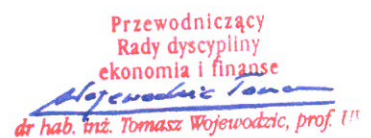 Przewodniczący
Rady dyscypliny
ekonomia i finanse
Wojewodzic Tomasz
dr hab. inż. Tomasz Wojewodzic, prof.